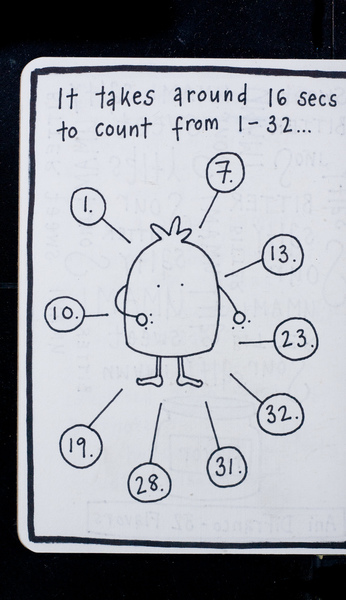 It takes around 16 secs
to count from 1-32...
7.
1.
13.
10.
23.
32.
19.
31.
28.